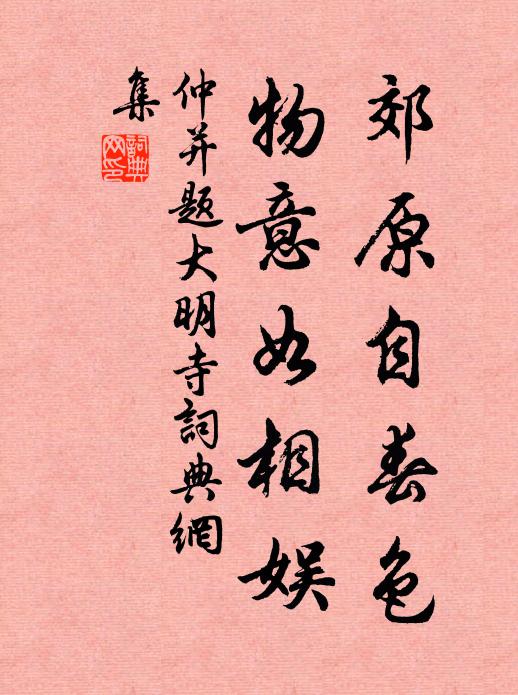 郊原自春色
物意如相娱
仲并题大明寺詞典網
集
詞典
网印